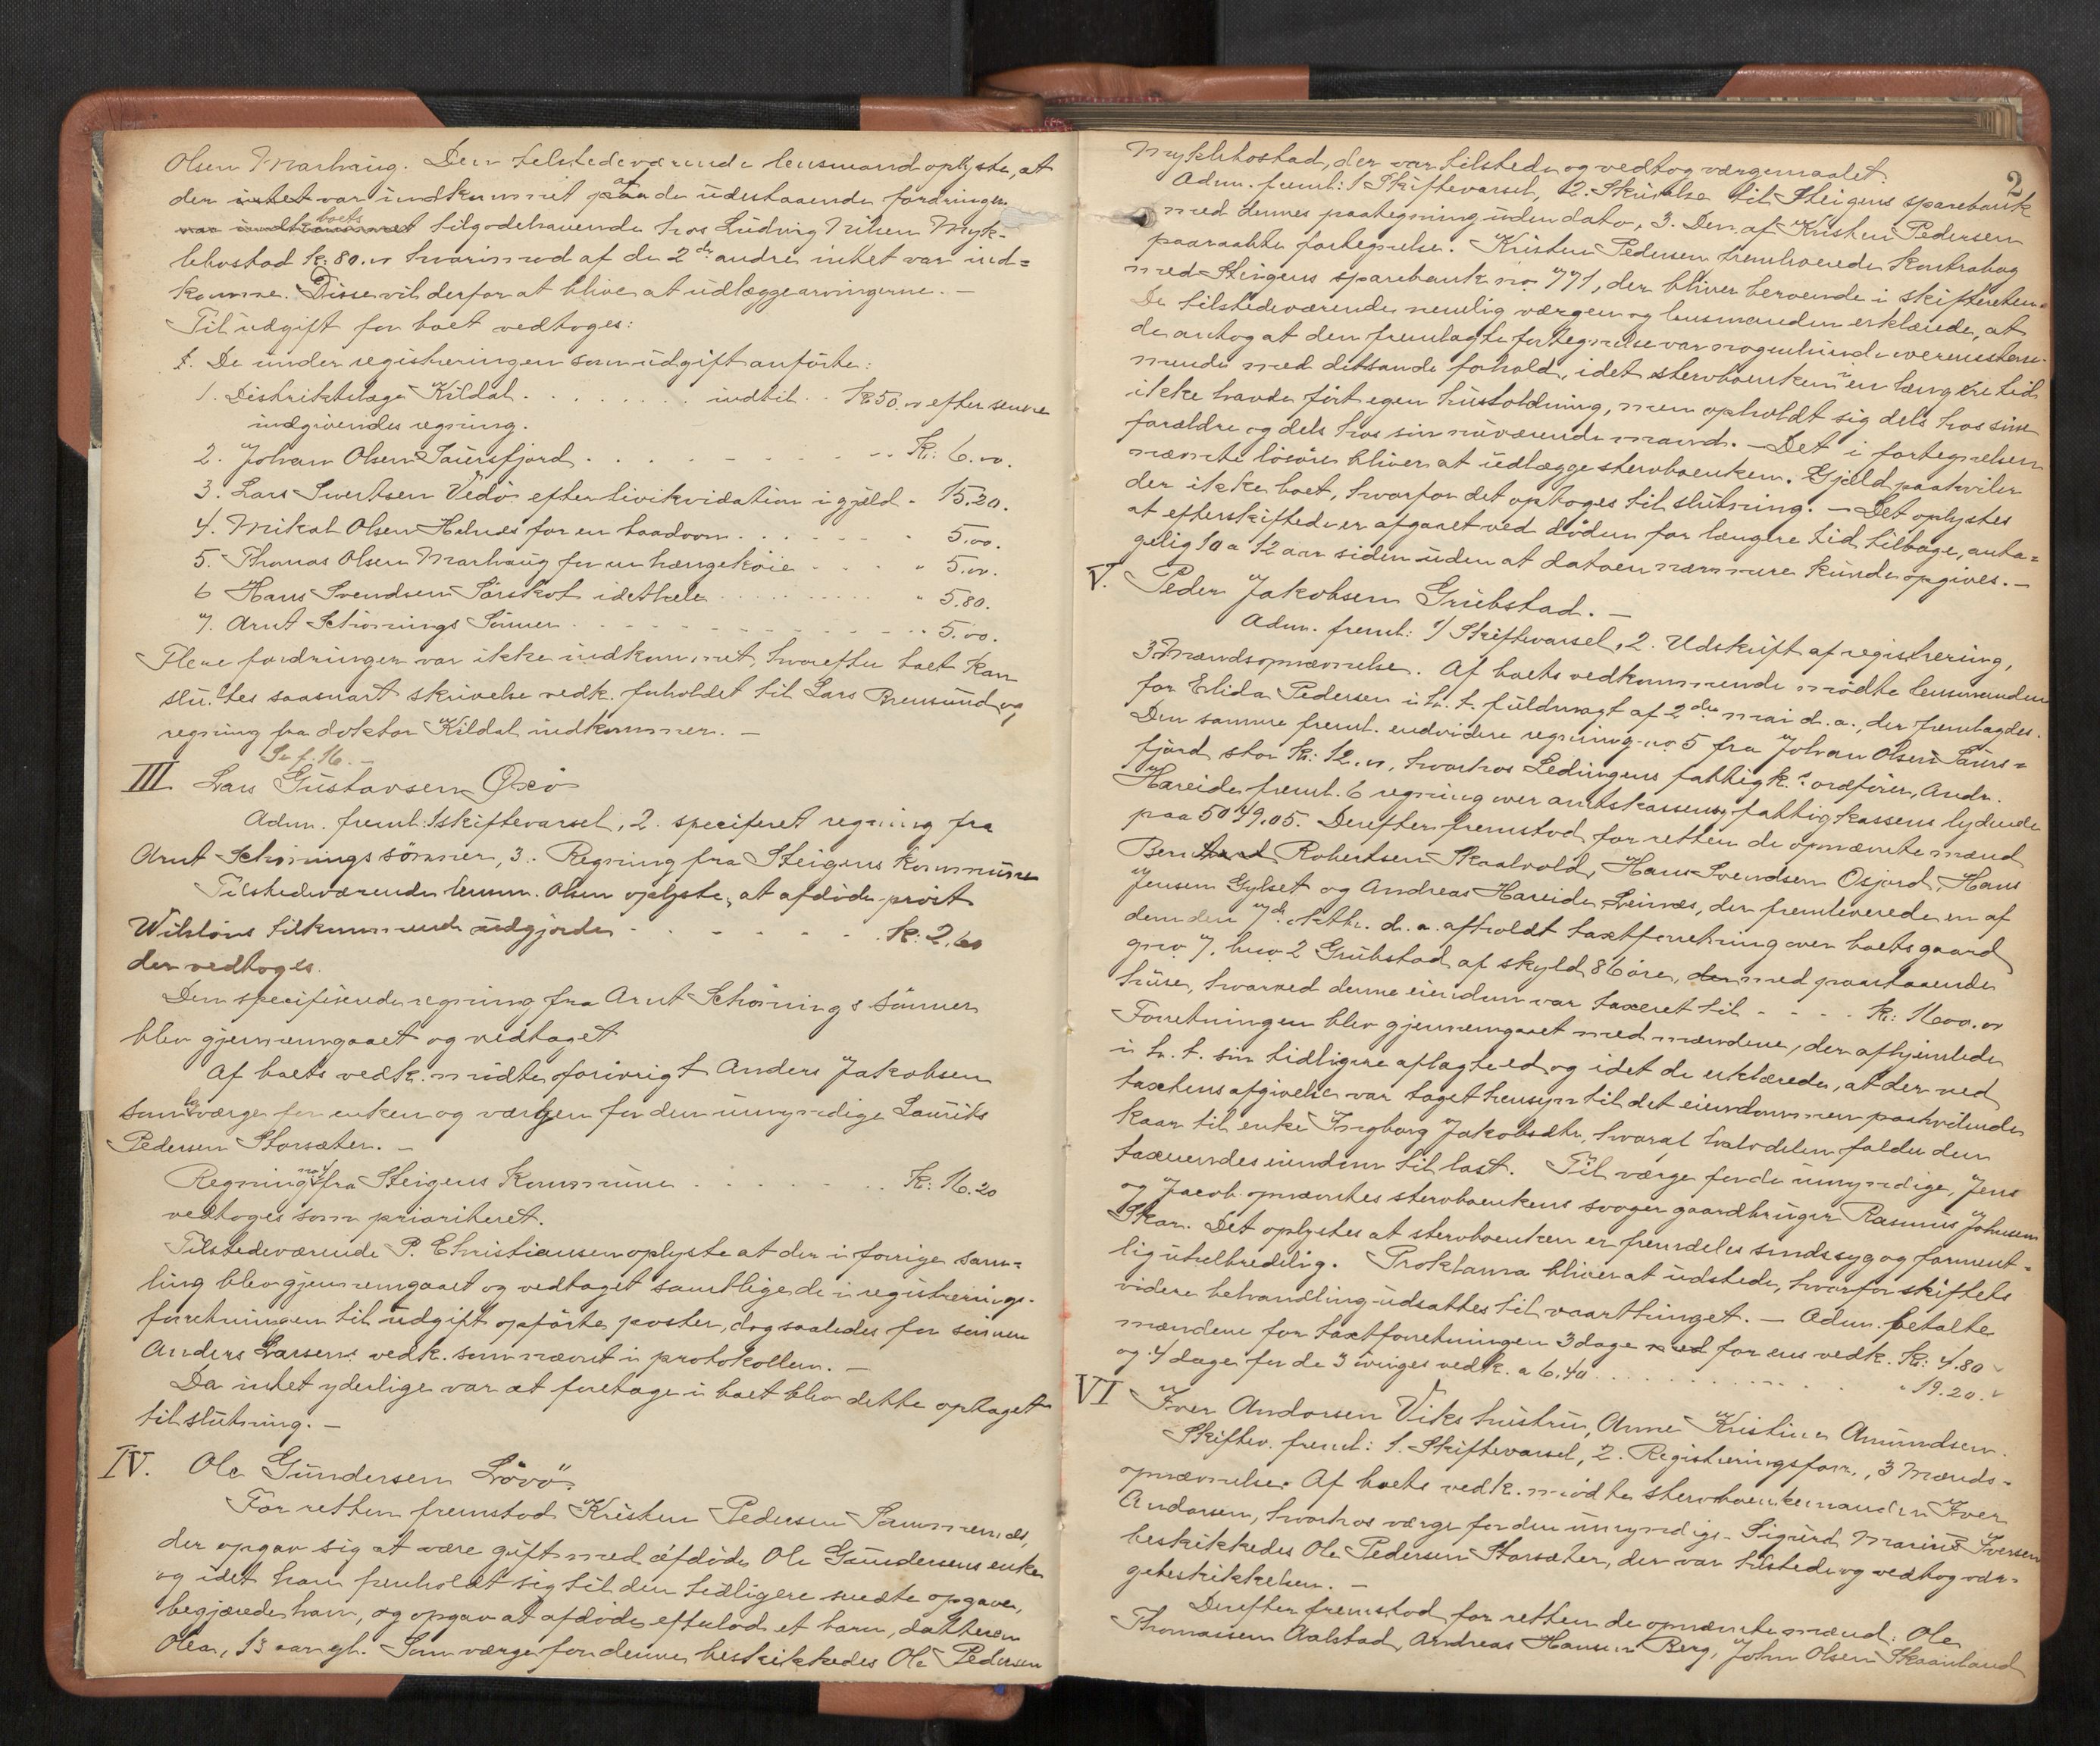 Olsen Marhaug. Den tilstedeværende lensmand oplyste, at
der intet var indkommet paa af de udestaaende fordringer.
var indkommet boets tilgodehavende hos Ludvig Nilsen Myk-
lebostad k: 80.00 hvorimod af de 2de andre intet var ind=
komme. Disse vil derfor at blive at udlægge arvingerne. —
Til udgift for boet vedtoges:
1. De under registreringen som udgift anførte:
1. Distriktslæge Kildal . . . . . . . indtil . . K: 50.00 efter senere
indgivendes regning.
2. Johan Olsen Saursfjord . . . . . . . . K: 6.00.
3. Lars Sivertsen Vedö efter livikvidation i gjæld - 15.20.
4. Mikal Olsen Helnes for en baadvom . . . . . . 5.00.
5. Thomas Olsen Marhaug for en hængekøie . . . . " 5.00.
6 Hans Svendsen Sørskot idethele . . . . . . " 5.80.
7. Arnt Schönings Sönner . . . . . . . . . 5.00.
Flere fordringer var ikke indkommet, hvorefter boet kan
sluttes saasnart skrivelse vedk. forholdet til Lars Brensund og
regning fra doktor Kildal indkommer. —
Se f: 16. —
III Lars Gustavsen Oxö
Adm. freml: 1 skiftevarsel, 2. specifiret regning fra
Arnt Schönings sönner, 3. Regning fra Steigens kommune
Tilstedeværende lensm. Olsen oplyste, at afdöde prost
Wiklöws tilkommende udgjorde . . . . . . . K: 2.60
der vedtoges.
Den specifiserede regning fra Arnt Schönings sönner
blev gjennemgaaet og vedtaget
Af boets vedk. mödte forövrigt Anders Jakobsen
som lagværge for enken og værgen for den umyndige Laurits
Pedersen Storsæter. —
Regning no 4 fra Steigens Kommune . . . . . . . K: 16.20
vedtoges som prioriteret.
Tilstedeværende P. Christiansen oplyste at der i forrige sam=
ling blev gjennemgaaet og vedtaget samtlige de i registrerings-
forretningen til udgift opførte poster, dog saaledes for sönnen
Anders Larsens vedk. som nævnt i protokollen. —
Da intet yderlige var at foretage i boet blev dette optaget
til slutning. —
IV. Ole Gundersen Lövö.
For retten fremstod Kristen Pedersen Sommernes,
der opgav sig at være gift med afdöde Ole Gundersens enke
og idet han fenholdt sig til den tidligere sendte opgave,
begjærede han, og opgav at afdöde efterlod et barn, datteren
Olea, 13 aar gl. Som værge for denne beskikkedes Ole Pedersen
2
Myklebostad, der var tilstede og vedtog værgemaalet.
Adm. freml: 1 Skiftevarsel, 2. Skrivelse til Steigens sparebank
med dennes paategning uden dato, 3. Den af Kristen Pedersen
paaraabte fortegnelse. Kristen Pedersen fremhvede kontrabog
med Steigens sparebank no 771, der bliver beroende i skifteretten.
De tilstedeværende nemlig værgen og lensmanden erklærede, at
de antog at den fremlagte fortegnelse var nogenlunde overensstem-
mende med det sande forhold, idet stervboenken i en længere tid
ikke havde fört egen husholdning, men opholdt sig dels hos sine
forældre og dels hos sin nuværende mand. — Det i fortegnelsen
nævnte lösöre bliver at udlægge stervboenken. Gjæld paahviler
der ikke boet, hvorfor det optoges til slutning. — Det oplystes
at efterskiftede er afgaaet ved döden for længere tid tilbage, anta=
gelig 10 a 12 aar siden uden at datoen nærmere kunde opgives. —
V. Peder Jakobsen Grubstad. —
Adm. freml: 1/ Skiftevarsel, 2. Udskrift af registrering,
3 Mændsopnævnelse. Af boets vedkommende mödte lensmanden
for Elida Pedersen i h. t. fuldmagt af 2den mai d. a., der fremlagdes.
Den samme freml. endvidere regning no 5 fra Johan Olsen Saurs=
fjord stor K: 12.00, hvorhos Ledingens fattigk.s ordförer, Andr.
Hareide freml. 6 regning over amtskassens og fattigkassens lydende
paa 5049.05. Derefter fremstod for retten de opnævnte mænd
Bernhard Robertsen Skaalvold, Hans Svendsen Osjord, Hans
Jensen Gylset og Andreas Hareide, Leines, der fremleverede en af
dem den 7de oktbr. d. a. afholdt taxtforretning over boets gaard
gno 7, bno 2 Grubstad af skyld 86 öre, der med paastaaende
huse, hvorved denne eiendom var taxeret til - - - - K: 1600.00
Forretningen blev gjennemgaaet med mændene, der afhjemlede
i h. t. sin tidligere aflagte ed og idet de erklærede, at der ved
taxtens afgivelse var taget hensyn til det eiendommen paahvilende
kaar til enke Ingborg Jakobsdtr, hvoraf halvdelen falder den
taxerendes eiendom til last. Til værge for de umyndige, Jens
og Jacob opnævntes stervboenkens svoger gaardbruger Rasmus Johnsen
Skar. Det oplystes at stervboenken er fremdeles sindssyg og forment-
lig uhelbredelig. Proklama bliver at udstede, hvorfor skiftets
videre behandling udsattes til vaarthinget. — Adm. betalte
mændene for taxtforretningen 3 dage med for ens vedk. K: 4.80
og 4 dage for de 3 övriges vedk. a 6.40 . . . . . . . " 19.20.
VI Iver Andorsen Viks hustru, Anne Kristine Amundsen.
Skiftev. freml: 1. Skiftevarsel, 2. Registreringsforr., 3 Mænds-
opnævnelse. Af boets vedk. mödte stervboenkemanden Iver
Andorsen, hvorhos værge for den umyndige Sigurd Marius Iversen
beskikkedes Ole Pedersen Storsæter, der var tilstede og vedtog vær-
gebeskikkelsen. —
Derefter fremstod for retten de opnævnte mænd: Ole
Thomassen Aalstad, Andreas Hansen Berg, John Olsen Skaanland